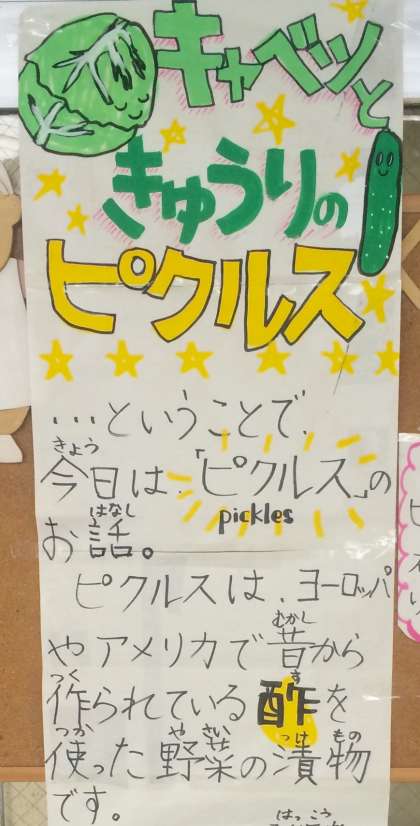 キャベツと
きゅうりの
ピクルス
…ということで、
きょう
今日は、「ピクルス」の
pickles
はなし
お話。
ピクルスは、ヨーロッパ
むかし
やアメリカで昔から
つく す
作られている酢を
つか やさい つけもの
使った野菜の漬物
です。
はっこう